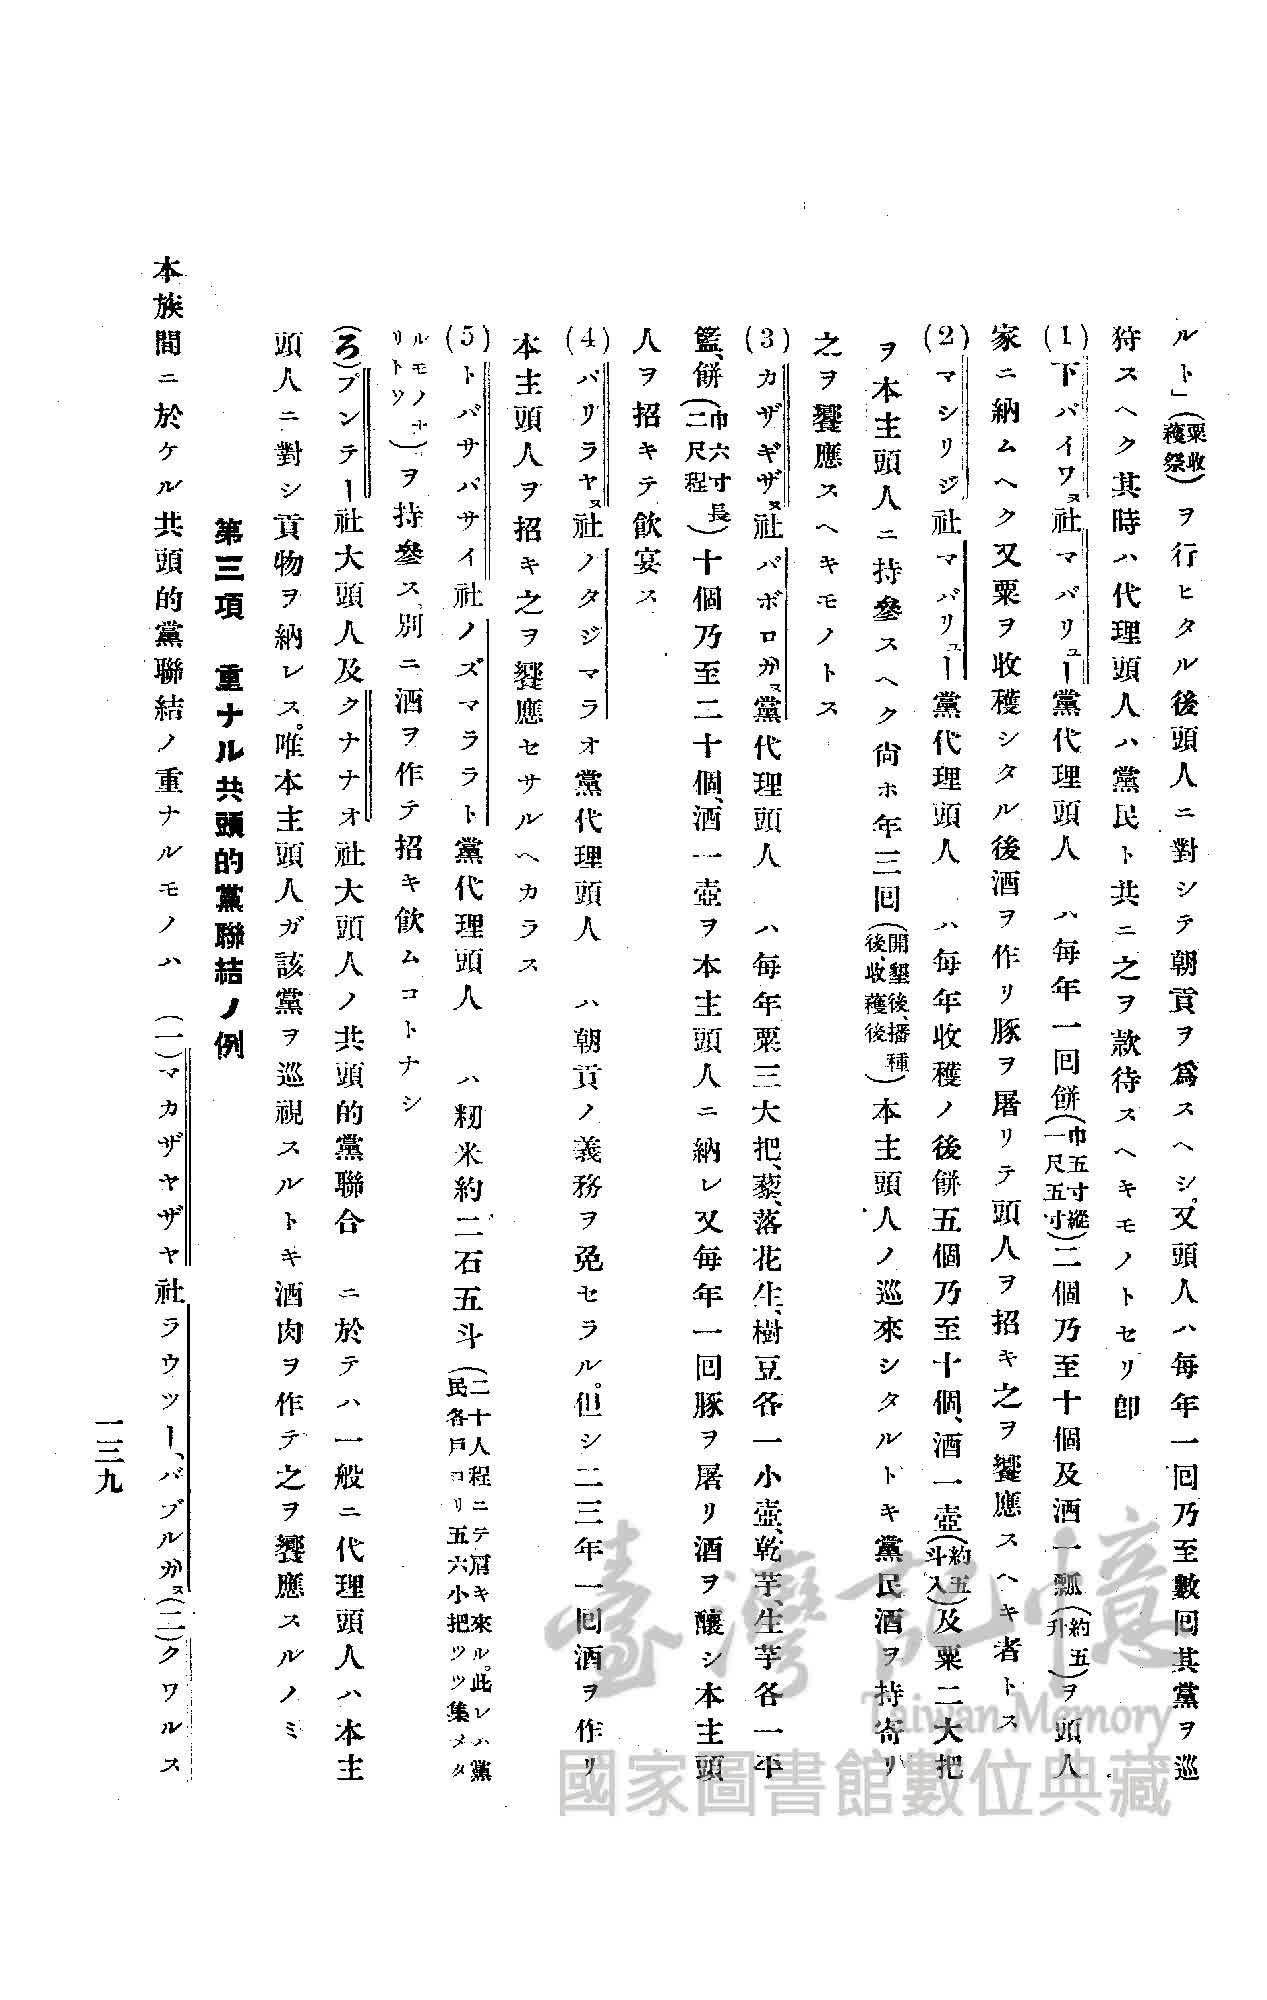 ルト」(粟收穫祭)ヲ行ヒタル後頭人ニ對シテ朝貢ヲ爲スヘシ。又頭人ハ每年一囘乃至數囘其黨ヲ巡
狩スヘク其時ハ代理頭人ハ黨民ト共ニ之ヲ款待スヘキモノトセリ卽
(1)下パイワヌ社マバリュー黨代理頭人 ハ每年一囘餅(巾五寸縱一尺五寸)二個乃至十個及酒一瓢(約五升)ヲ頭人
家ニ納ムヘク又粟ヲ收穫シタル後酒ヲ作リ豚ヲ屠リテ頭人ヲ招キ之ヲ饗應スヘキ者トス
(2)マシリジ社マバリュー黨代理頭人 ハ每年收穫ノ後餅五個乃至十個、酒一壺(約五斗入)及粟二大把
ヲ本主頭人ニ持參スヘク尙ホ年三囘(開墾後、播種後、收穫後)本主頭人ノ巡來シタルトキ黨民酒ヲ持寄リ
之ヲ饗應スヘキモノトス
(3)カザギザヌ社バボロガス黨代理頭人 ハ每年粟三大把、藜、落花生、樹豆各一小壺、乾芋、生芋各一平
籃、餅(巾六寸長二尺程)十個乃至二十個、酒一壺ヲ本主頭人ニ納レ又每年一囘豚ヲ屠リ酒ヲ釀シ本主頭
人ヲ招キテ飮宴ス
(4)バリラヤヌ社ノタジマラオ黨代理頭人 ハ朝貢ノ義務ヲ免セラル。但シ二三年一囘酒ヲ作リ
本主頭人ヲ招キ之ヲ饗應セサルヘカラス
(5)トバサバサイ社ノズマララト黨代理頭人 ハ籾米約二石五斗(二十人程ニテ肩キ來ル。此レハ黨民各戶ヨリ五六小把ツツ集メタ
ルモノナリトツ)ヲ持參ス、別ニ酒ヲ作テ招キ飮ムコトナシ
(ろ)プンテー社大頭人及クナナオ社大頭人ノ共頭的黨聯合 ニ於テハ一般ニ代理頭人ハ本主
頭人ニ對シ貢物ヲ納レス。唯本主頭人ガ該黨ヲ巡視スルトキ酒肉ヲ作テ之ヲ饗應スルノミ
第三項 重ナル共頭的黨聯結ノ例
本族間ニ於ケル共頭的黨聯結ノ重ナルモノハ (一)マカザヤザヤ社ラウツー、バブルガヌ(二)クワルス
一三九
臺灣記憶
Taiwan Memory
國家圖書館數位典藏